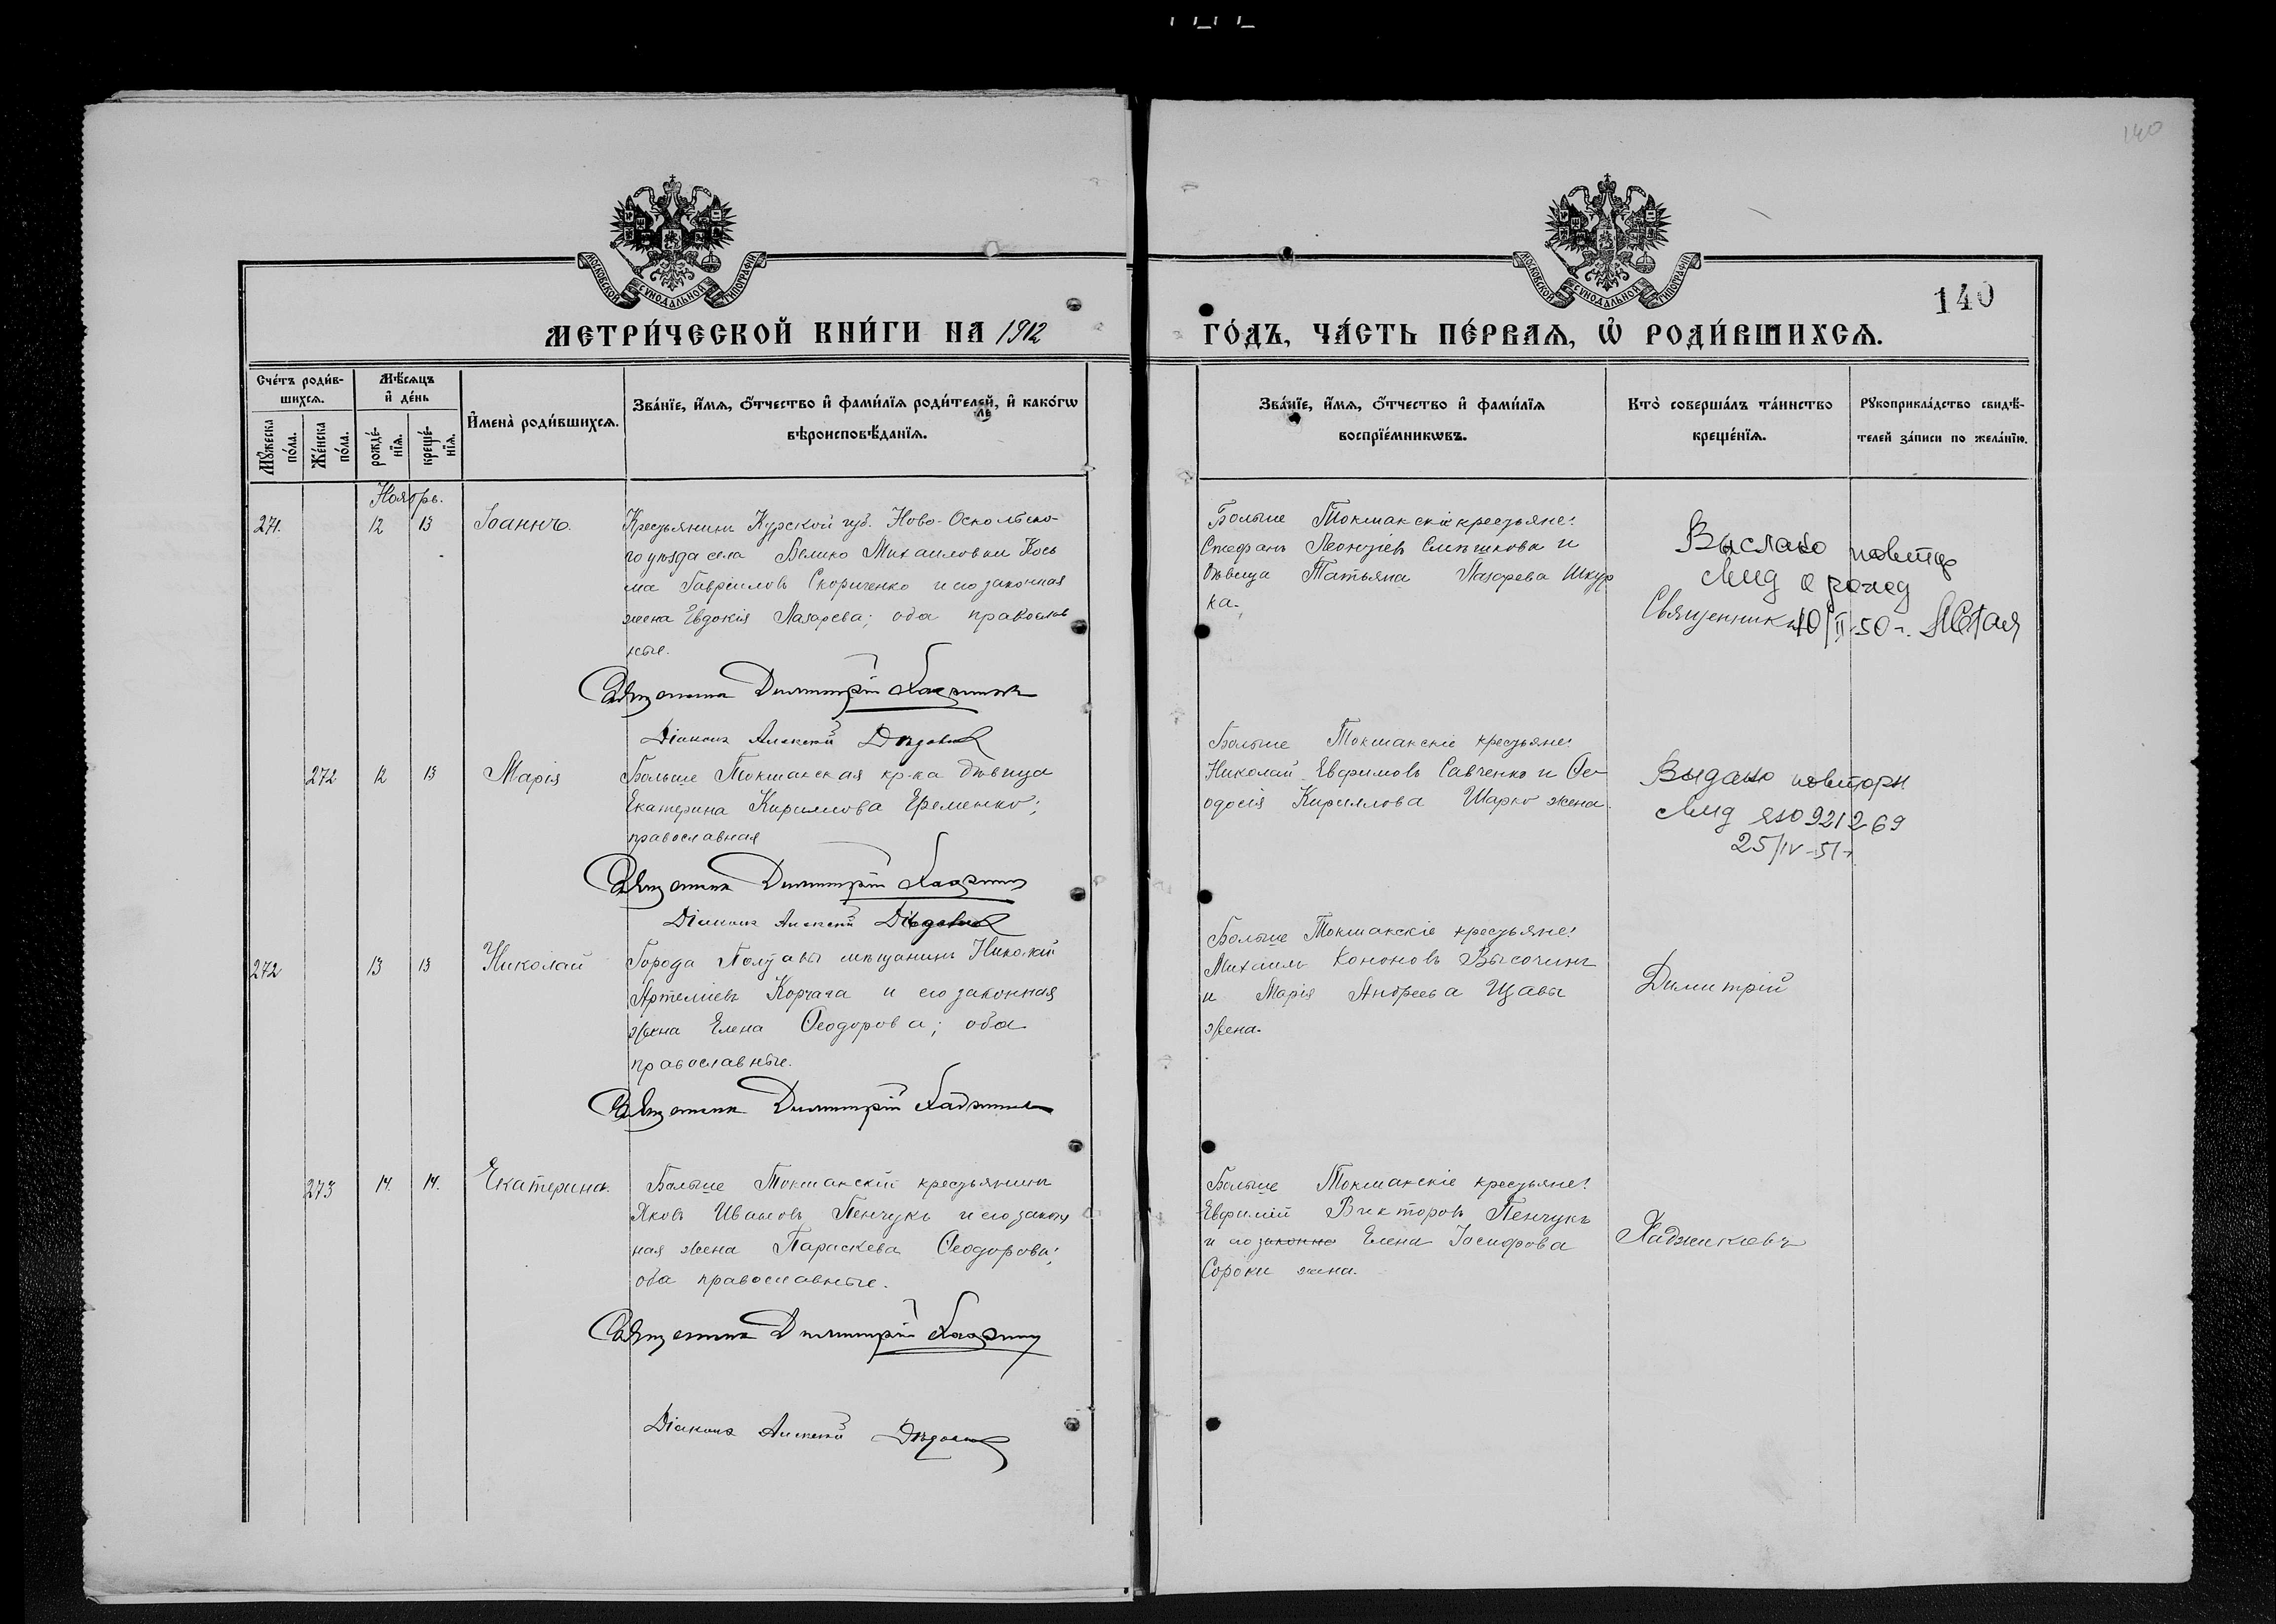 140
140
МОСКОВСКОЙ СУНОДАЛЬНОЙ ТИПОГРАФІИ
МОСКОВСКОЙ СУНОДАЛЬНОЙ ТИПОГРАФІИ
МЕТРИ́ЧЕСКОЙ КНИ́ГИ НА 1912
ГО́ДЪ, ЧА́СТЬ ПЕ́РВАѦ, Ѡ҆ РОДИ́ВШИХСѦ.
Сче́тъ роди́в-
шихсѧ.
Мꙋ́жеска по́ла.
Же́нска по́ла.
Мѣ́сѧцъ
и҆ де́нь
рожде́-
нїѧ.
креще́-
нїѧ.
И҆мена̀ роди́вшихсѧ.
Зва́нїе, и҆́мѧ, ѻ҆́тчество и҆ фами́лїѧ роди́телей, и҆ како́гѡ
вѣроисповѣ́данїѧ.
Зва́нїе, и҆́мѧ, ѻ҆́тчество и҆ фами́лїѧ
воспрїе́мникѡвъ.
Кто̀ соверша́лъ та́инство
креще́нїѧ.
Рꙋкоприкла́дство свидѣ́-
телей за́писи по жела́нїю.
Ноябрь.
271. 12 13 Іоаннъ.
Крестьянинъ Курской губ. Ново-Оскольско-
го уѣзда села Велико Михаиловки Кось
ма Гавріиловъ Скориченко и его законная
жена Евдокія Лазарева; оба православ
ные.
Священникъ Димитрій Хаджиновъ
Діаконъ Алексій
Больше Токмакскіе крестьяне:
Стефанъ Леонтіевъ Слѣпиковъ и
дѣвица Татьяна Лазарева Шкур
ка.
Выслано повтор
свид о рожд
Священникъ 10/II-50 г.
272 12 13 Марія
Больше Токмакская кр-ка дѣвица
Екатерина Кириллова Еременко;
православная
Священникъ Димитрій Хаджиновъ
Діаконъ Алексій
Больше Токмакскіе крестьяне:
Николай Евфимовъ Савченко и Ѳе
одосія Кириллова Шарко жена.
Выдано повторн
свид яю 921269
25/IV-51 г.
272 13 13 Николай
Города Полтавы мѣщанинъ Николай
Артеміевъ Корчага и его законная
жена Елена Ѳеодорова; оба
православные.
Священникъ Димитрій Хаджиновъ
Больше Токмакскіе крестьяне:
Михаилъ Кононовъ Высочинъ
и Марія Андреева Щавы
жена.
Димитрій
273 14. 14. Екатерина.
Больше Токмакскій крестьянинъ
Яковъ Ивановъ Пенчукъ и его закон
ная жена Параскева Ѳеодорова;
оба православные.
Священникъ Димитрій Хаджиновъ
Діаконъ Алексій
Больше Токмакскіе крестьяне:
Евфимій Викторовъ Пенчукъ
и его законно Елена Іосифова
Сороки жена.
Хаджиновъ